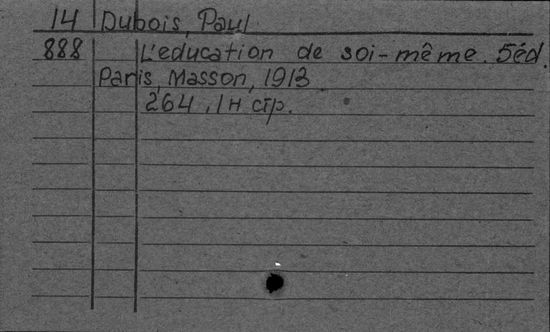 14 Dubois, Paul
888 L'education de soi-même. 5éd.
Paris, Masson, 1913
264, 1н стр.